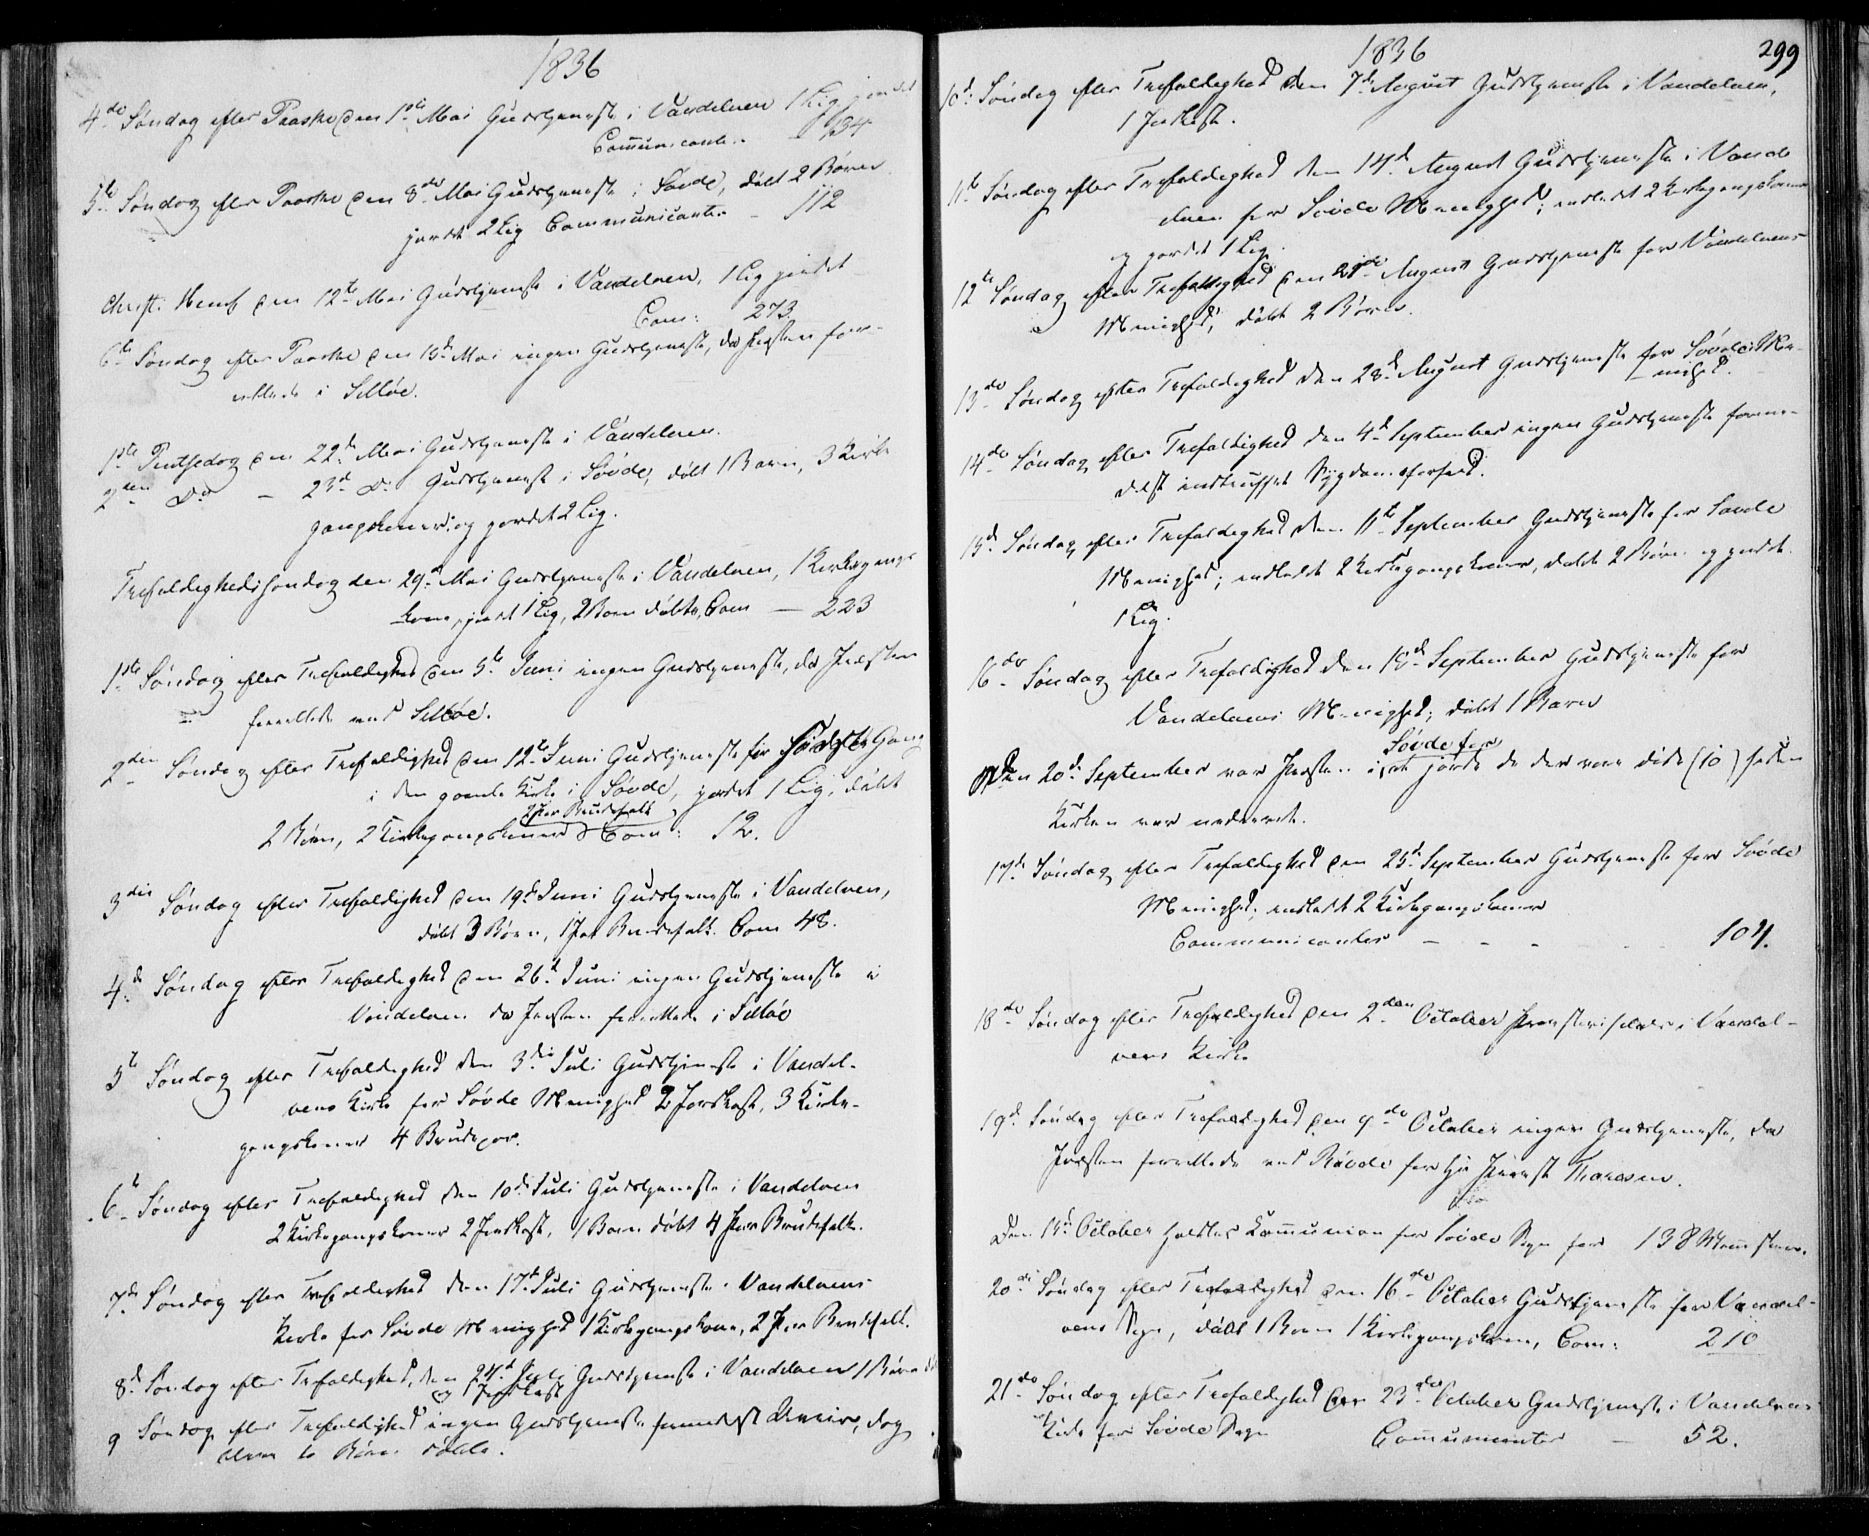 1836
4de Søndag efter Paaske den 1ste Mai Gudstjeneste i Vandelven 1 Lig jordet
Communicanter 134
5te Søndag efter Paaske den 8de Mai Gudstjeneste i Søvde, døbt 2 Børn
jordet 2 Lig Communicanter - 112
Christi Himf den 12te Mai Gudstjeneste i Vandelven, 1 Lig jordet
Com: 273.
6te Søndag efter Paaske den 15d Mai ingen Gudstjeneste, da Præsten for-
rettede i Silløe.
1ste Pintsedag den 22d Mai Gudstjeneste i Vandelven.
2den Do - 23d Do Gudstjeneste i Søvde, døbt 1 Barn, 3 Kirke
gangskoner og jordet 2 Lig.
Trefoldighedssøndag den 29d Mai Gudstjeneste i Vandelven, 1 Kirkegangs
kone, jordet 1 Lig, 2 Børn døbte, Com — 223
1ste Søndag efter Trefoldighed den 5te Juni ingen Gudstjeneste, da Præsten
forrettede ved Silløe.
2den Søndag efter Trefoldighed den 12te Juni Gudstjeneste for sidste Gang
i den gamle Kirke i Søvde, jordet 1 Lig, døbt
2 Par Brudefolk
2 Børn, 2 Kirkegangskoner Com: 12.
3die Søndag efter Trefoldighed den 19d Juni Gudstjeneste i Vandelven,
døbt 3 Børn, 1 Par Brudefolk. Com 48.
4de Søndag efter Trefoldighed den 26d Juni ingen Gudstjeneste i
Vandelven da Præsten forrettede i Silløe
5te Søndag efter Trefoldighed den 3die Juli Gudstjeneste i Vandel-
vens Kirke for Søvde Menighed 2 Jordkast, 3 Kirke-
gangskoner 4 Brudepar.
6te Søndag efter Trefoldighed den 10de Juli Gudstjeneste i Vandelven
2 Kirkegangskoner 2 Jordkast, 1 Barn døbt 4 Par Brudefolk.
7de Søndag efter Trefoldighed den 17d Juli Gudstjeneste i Vandelvens
Kirke for Søvde Menighed 1 Kirkegangskone, 2 Par Brudefolk.
8d Søndag efter Trefoldighed, den 24d Juli Gudstjeneste i Vandelven 1 Barn
og 1 Jordkast
9 Søndag efter Trefoldighed ingen Gudstjeneste formedelst, dog
bleve to Børn døbte.
1836
299
10d Søndag efter Trefoldighed den 7d August Gudstjeneste i Vandelven,
1 Jordkast.
11te Søndag efter Trefoldighed den 14d August Gudstjeneste i Vand
elven for Søvde Menighed; indledet 2 Kirkegangskoner
og jordet 1 Lig.
12te Søndag efter Trefoldighed den 21de August Gudstjeneste for Vandelvens
Menighed, døbt 2 Børn.
13de Søndag efter Trefoldighed den 28d August Gudstjeneste for Søvde Me-
nighed.
14de Søndag efter Trefoldighed den 4d September ingen Gudstjeneste forme-
delst indtruffet Sygdomsforfald.
15d Søndag efter Trefoldighed den 11te September Gudstjeneste for Søvde
Menighed; indledet 2 Kirkegangskoner, døbt 2 Børn og jordet
1 Lig.
16de Søndag efter Trefoldighed den 18d September Gudstjeneste for
Vandelvens Menighed; døbt 1 Barn
Søvde for
Den 20d September var Præsten i at jorde de der vare døde (10) siden
Kirken var nedrevet.
17d Søndag efter Trefoldighed den 25d September Gudstjeneste for Søvde
Menighed, indledet 2 Kirkegangskoner
Communicanter - - - - 104.
18de Søndag efter Trefoldighed den 2den October i Vandel-
vens Kirke
19d Søndag efter Trefoldighed den 9de October ingen Gudstjeneste, da
Præsten forrettede ved Røvde for Hr Provst Thoresen.
Den October holdtes Kommunion for Søvde Sogn for 138 Mennesker.
20de Søndag efter Trefoldighed den 16de October Gudstjeneste for Vandel-
vens Sogn, døbt 1 Barn 1 Kirkegangskone, Com: 210
21de Søndag efter Trefoldighed den 23de October Gudstjeneste i Vandelvens
Kirke for Søvde Sogn Communicanter — 52.